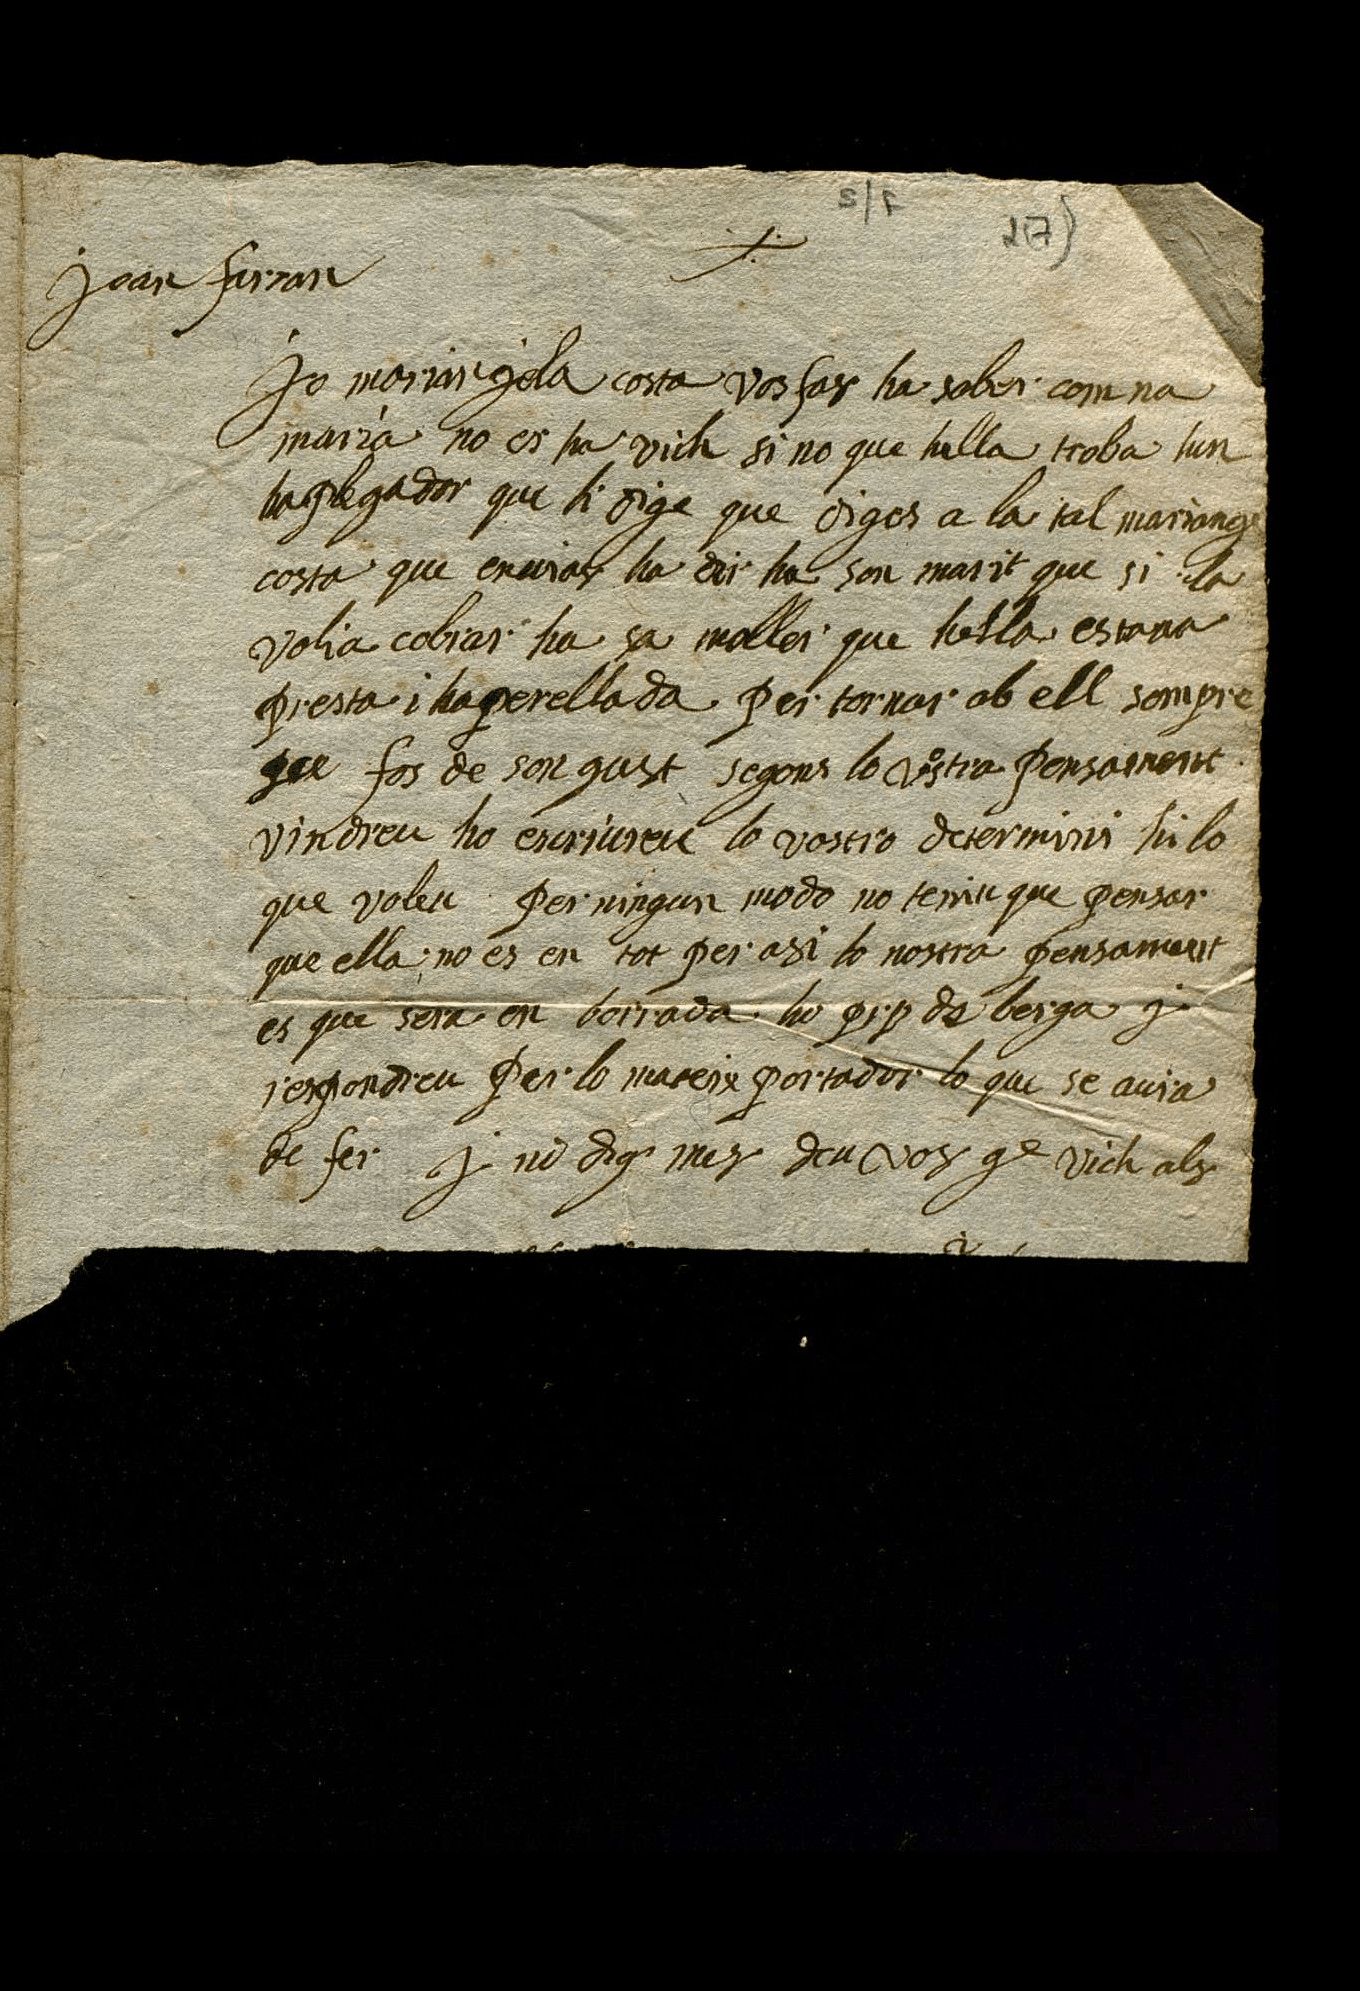 S/F
217)
joan farran
Jo mariangela costa vos fas ha saber com na
maria no es ha vich si no que hella troba hun
haplegador que li dige que digos a la tal mariange
costa que enuias ha dir ha son marit que si la
volia cobrar ha sa moller que hella estaua
presta i haperellada per tornar ab ell sempre
que fos de son gust segons lo vostra pensament
vindreu ho escriureu lo vostro determini hi lo
que voleu per ningun modo no teniu que pensar
que ella no es en tot per asi lo nostra pensament
es que sera en borrada ho prp de berga j
respondreu per lo mateix portador lo que se aura
de fer j no dig mes deu vos ge vich als